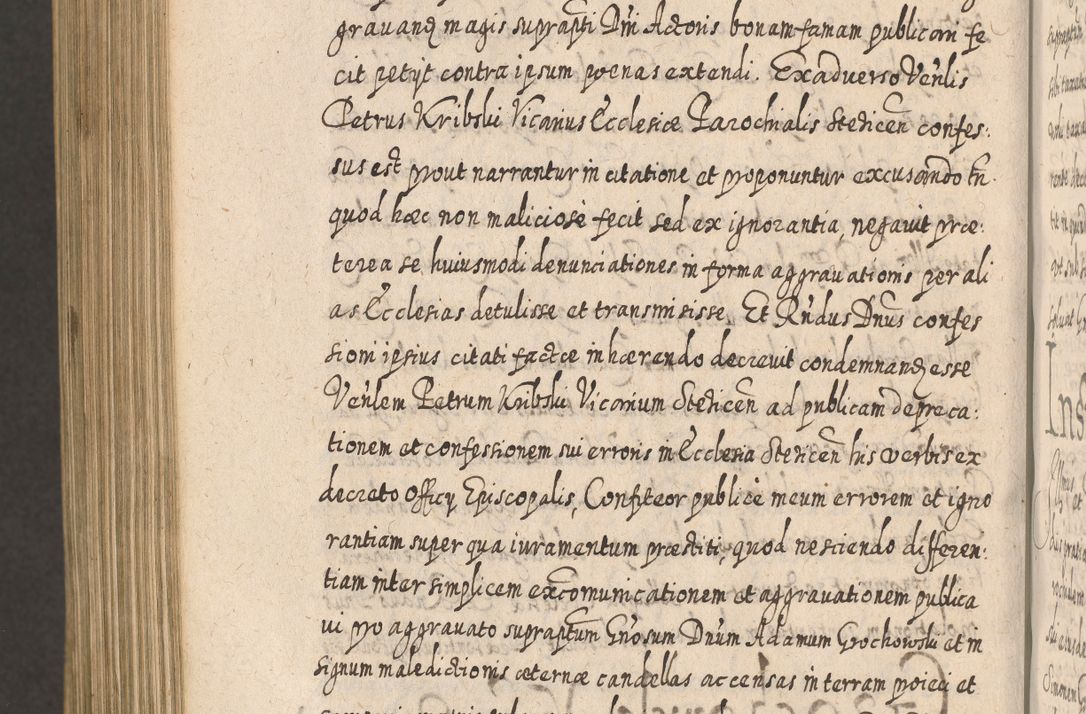 gravanđ magis supraptī Dnī Actoris bonam famam publicam fe
cit petijt contra ipsum pœnas extendi. Ex adverso Venlis
Petrus Kribski Vicarius Ecclesiæ Parochialis Stezicen̄ confes:
sus est prout narrantur in citatione et proponuntur excusando tn̄
quod hæc non maliciosè fecit sed ex ignorantia, negavit præ:
terea se huiusmodi denunciationes in forma aggravationis per ali
as Ecclesias detulisse et transmisisse. Et Rndus Dnus confes
sioni ipsius citati factæ inhærendo decrevit condemnanđ esse
Venlem Petrum Kribski Vicarium Stezicen̄ ad publicam depreca:
tionem et confessionem sui erroris in Ecclesia Stezicen̄ his verbis ex
decreto Officij Episcopalis, Confiteor publicè meum errorem et igno
rantiam super qua iuramentum præstiti, quod nesciendo differen:
tiam inter simplicem excommunicationem et aggravationem publica
vi pro aggravato supraptum Gnosum Dnum Adamum Grochowski et in
signum maledictionis æternæ candellas accensas in terram proieci et